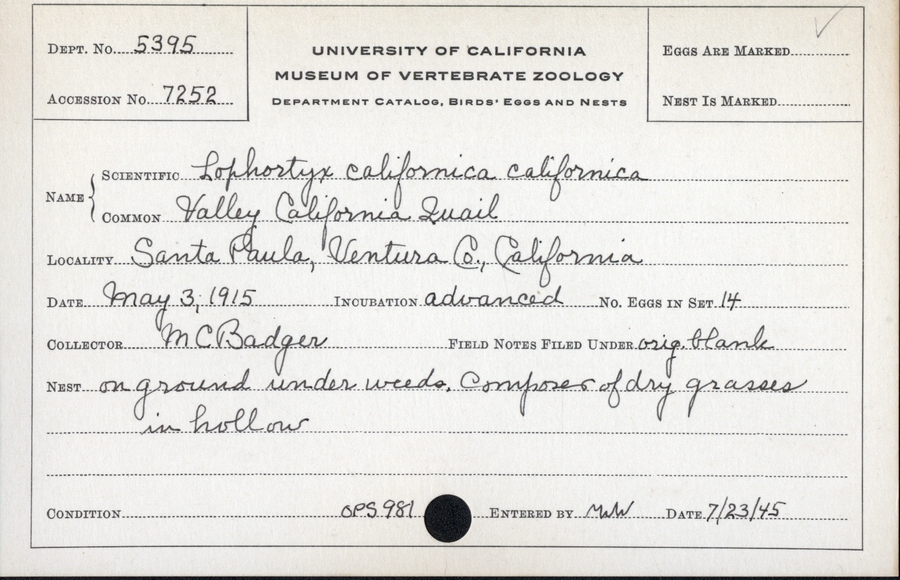 DEPT. NO. 5395
UNIVERSITY OF CALIFORNIA
MUSEUM OF VERTEBRATE ZOOLOGY
DEPARTMENT CATALOG, BIRDS' EGGS AND NESTS
ACCESSION NO. 7252
EGGS ARE MARKED
NEST IS MARKED
NAME
SCIENTIFIC Lophortyx californica californica
COMMON Valley California Quail
LOCALITY Santa Paula, Ventura Co., California
DATE May 3, 1915 INCUBATION advanced NO. EGGS IN SET 14
COLLECTOR M C Badger FIELD NOTES FILED UNDER orig. blank
NEST on ground under weeds. Composes of dry grasses
in hollow
CONDITION OPS 981 ENTERED BY MWW DATE 7/23/45